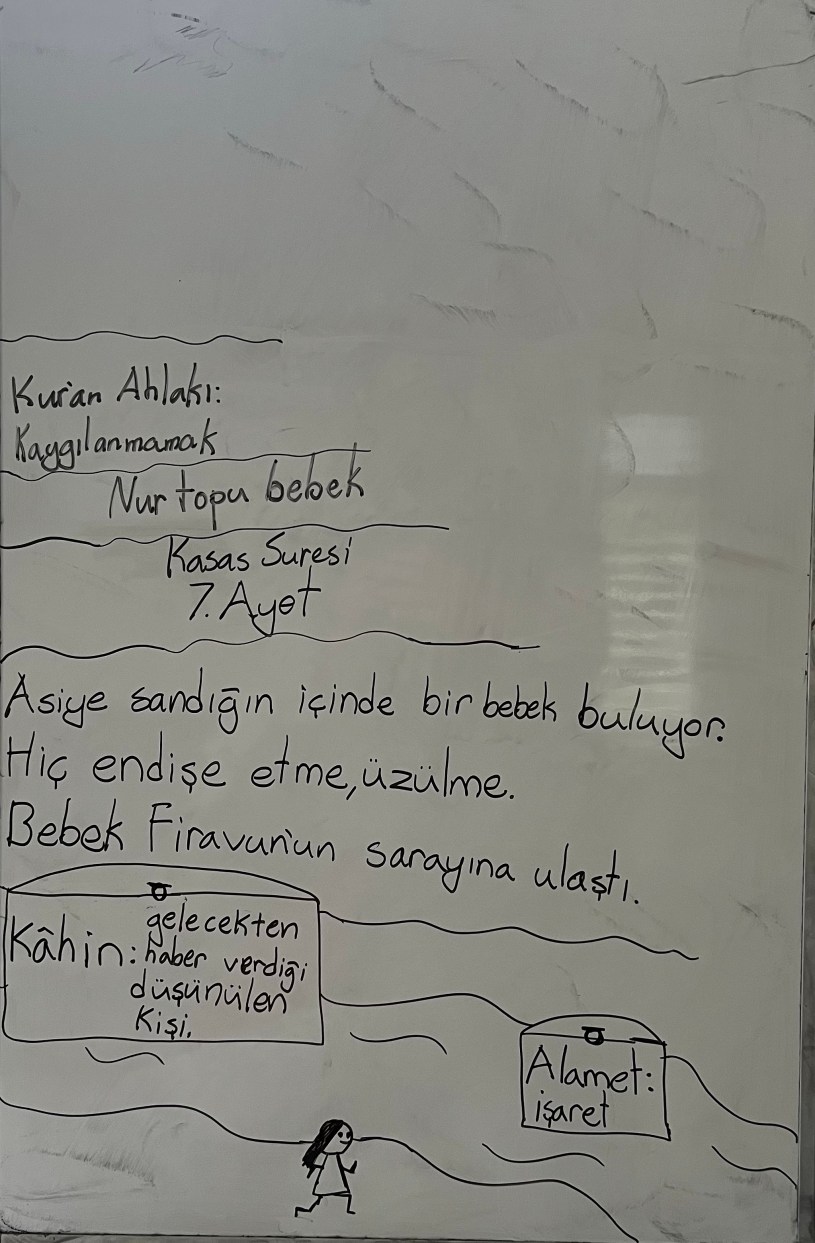 Kur'an Ahlakı:
Kaygılanmamak
Nur topu bebek
Kasas Suresi
7. Ayet
Asiye sandığın içinde bir bebek buluyor.
Hiç endişe etme, üzülme.
Bebek Firavun'un sarayına ulaştı.
Kâhin: gelecekten
haber verdiği
düşünülen
kişi.
Alamet:
işaret